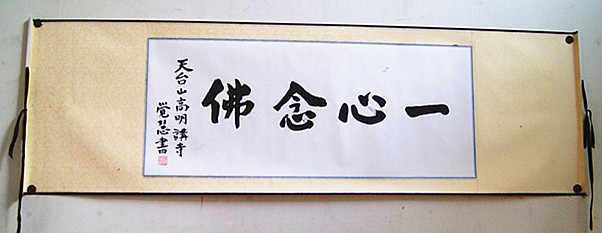 一心念佛
天台山高明講寺
覺慧書